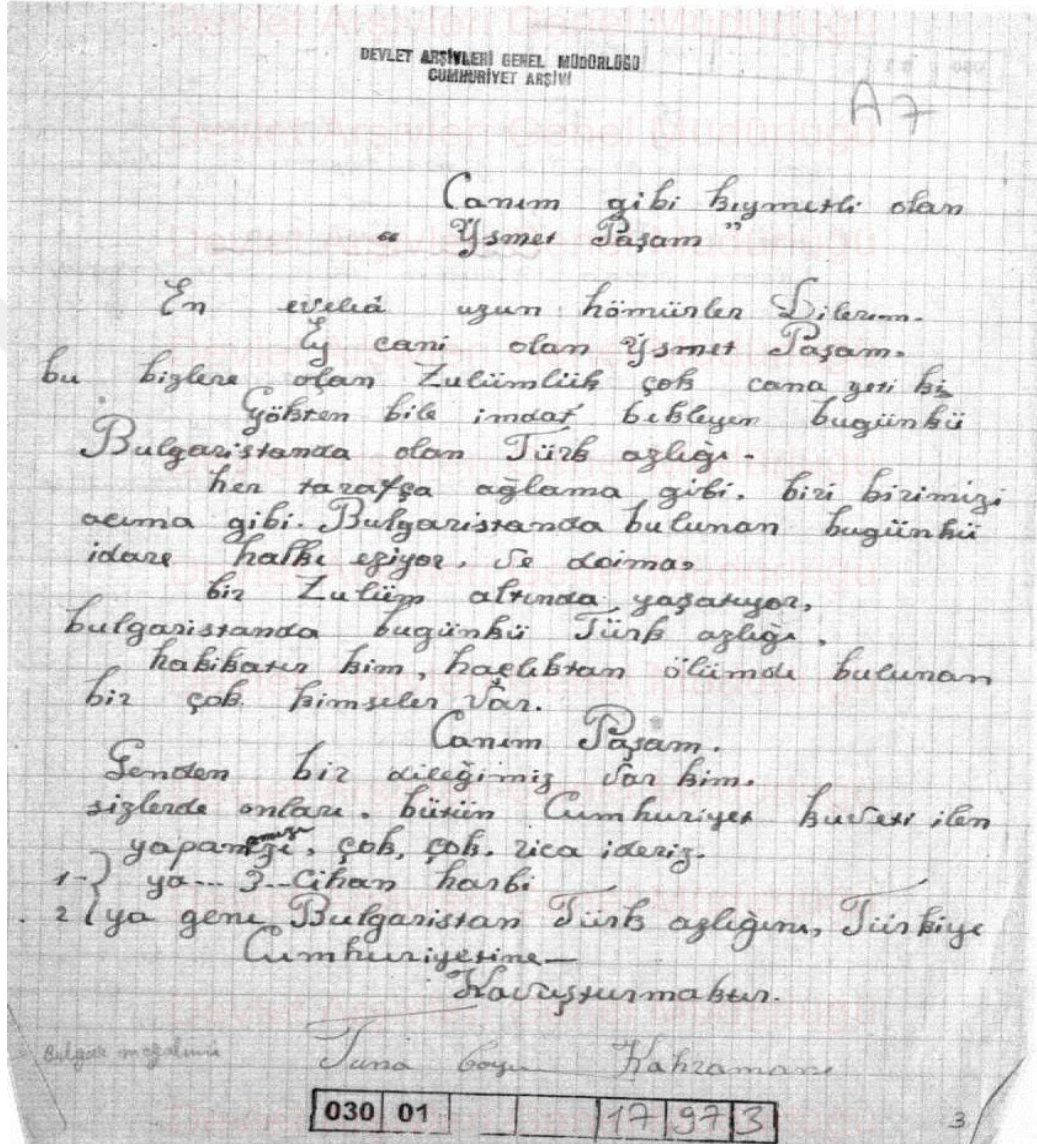 Devlet Arşivleri Genel Müdürlüğü
DEVLET ARŞİVLERİ GENEL MÜDÜRLÜĞÜ
CUMHURİYET ARŞİVİ
A7
Canım gibi kıymetli olan
" Ysmet Paşam "
En evelıâ uzun hömürler Dilerım.
Ey cani olan Ysmet Paşam.
bu bizlere olan Zulümlük çok cana yeti ki
Gökten bile imdat bekleyen bugünkü
Bulgaristanda olan Türk azlığı.
her tarafça ağlama gibi. biri birimizi
acıma gibi. Bulgaristanda bulunan bugünkü
idare halkı eziyor. Ve daima,
bir Zulüm altında yaşatıyor,
bulgaristanda bugünkü Türk azlığı.
hakikatın kim, haçlıktan ölümde bulunan
bir çok kimseler Var.
Canım Paşam.
Senden bir dileğimiz Var kim.
sizlerde onları. bütün Cumhuriyet kuveti ilen
yapamanızı, çok, çok. rica ideriz.
1-} ya... 3--Cihan harbi
2 { ya gene Bulgaristan Türk azlığını, Türkiye
Cumhuriyetine—
Kavuşturmaktır.
Bulgar mezalimi
Tuna boyu Kahramanı
030 01 17 97 3
3